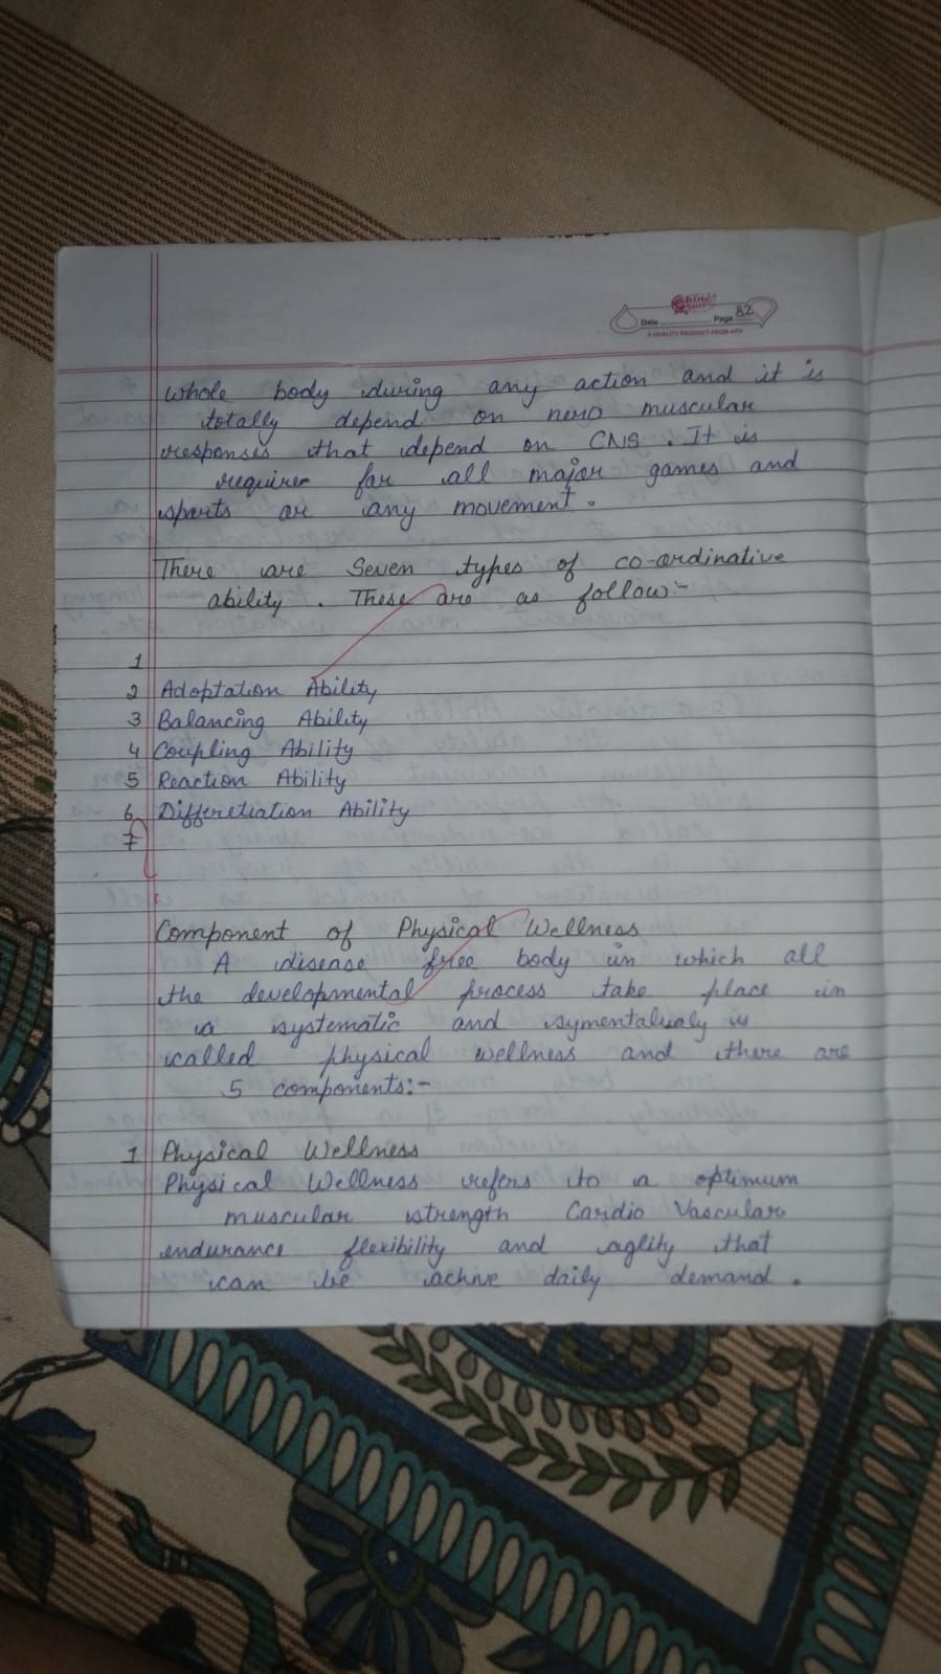 Shine
Date Page 82
A QUALITY PRODUCT FROM APH
whole body during any action and it is
totally depend on nero muscular
responses that depend on CNS. It is
require for all major games and
sports are any movement.
There are Seven types of co-ordinative
ability. These are as follow:-
1
2 Adoptation Ability
3 Balancing Ability
4 Coupling Ability
5 Reaction Ability
6 Differetiation Ability
7
Component of Physical Wellness
A disease free body in which all
the developmental process take place in
a systematic and symentalualy is
called physical wellness and there are
5 components:-
1 Physical Wellness
Physical Wellness refers to a optimum
muscular strength Cardio Vascular
endurance flexibility and aglity that
can be achive daily demand.